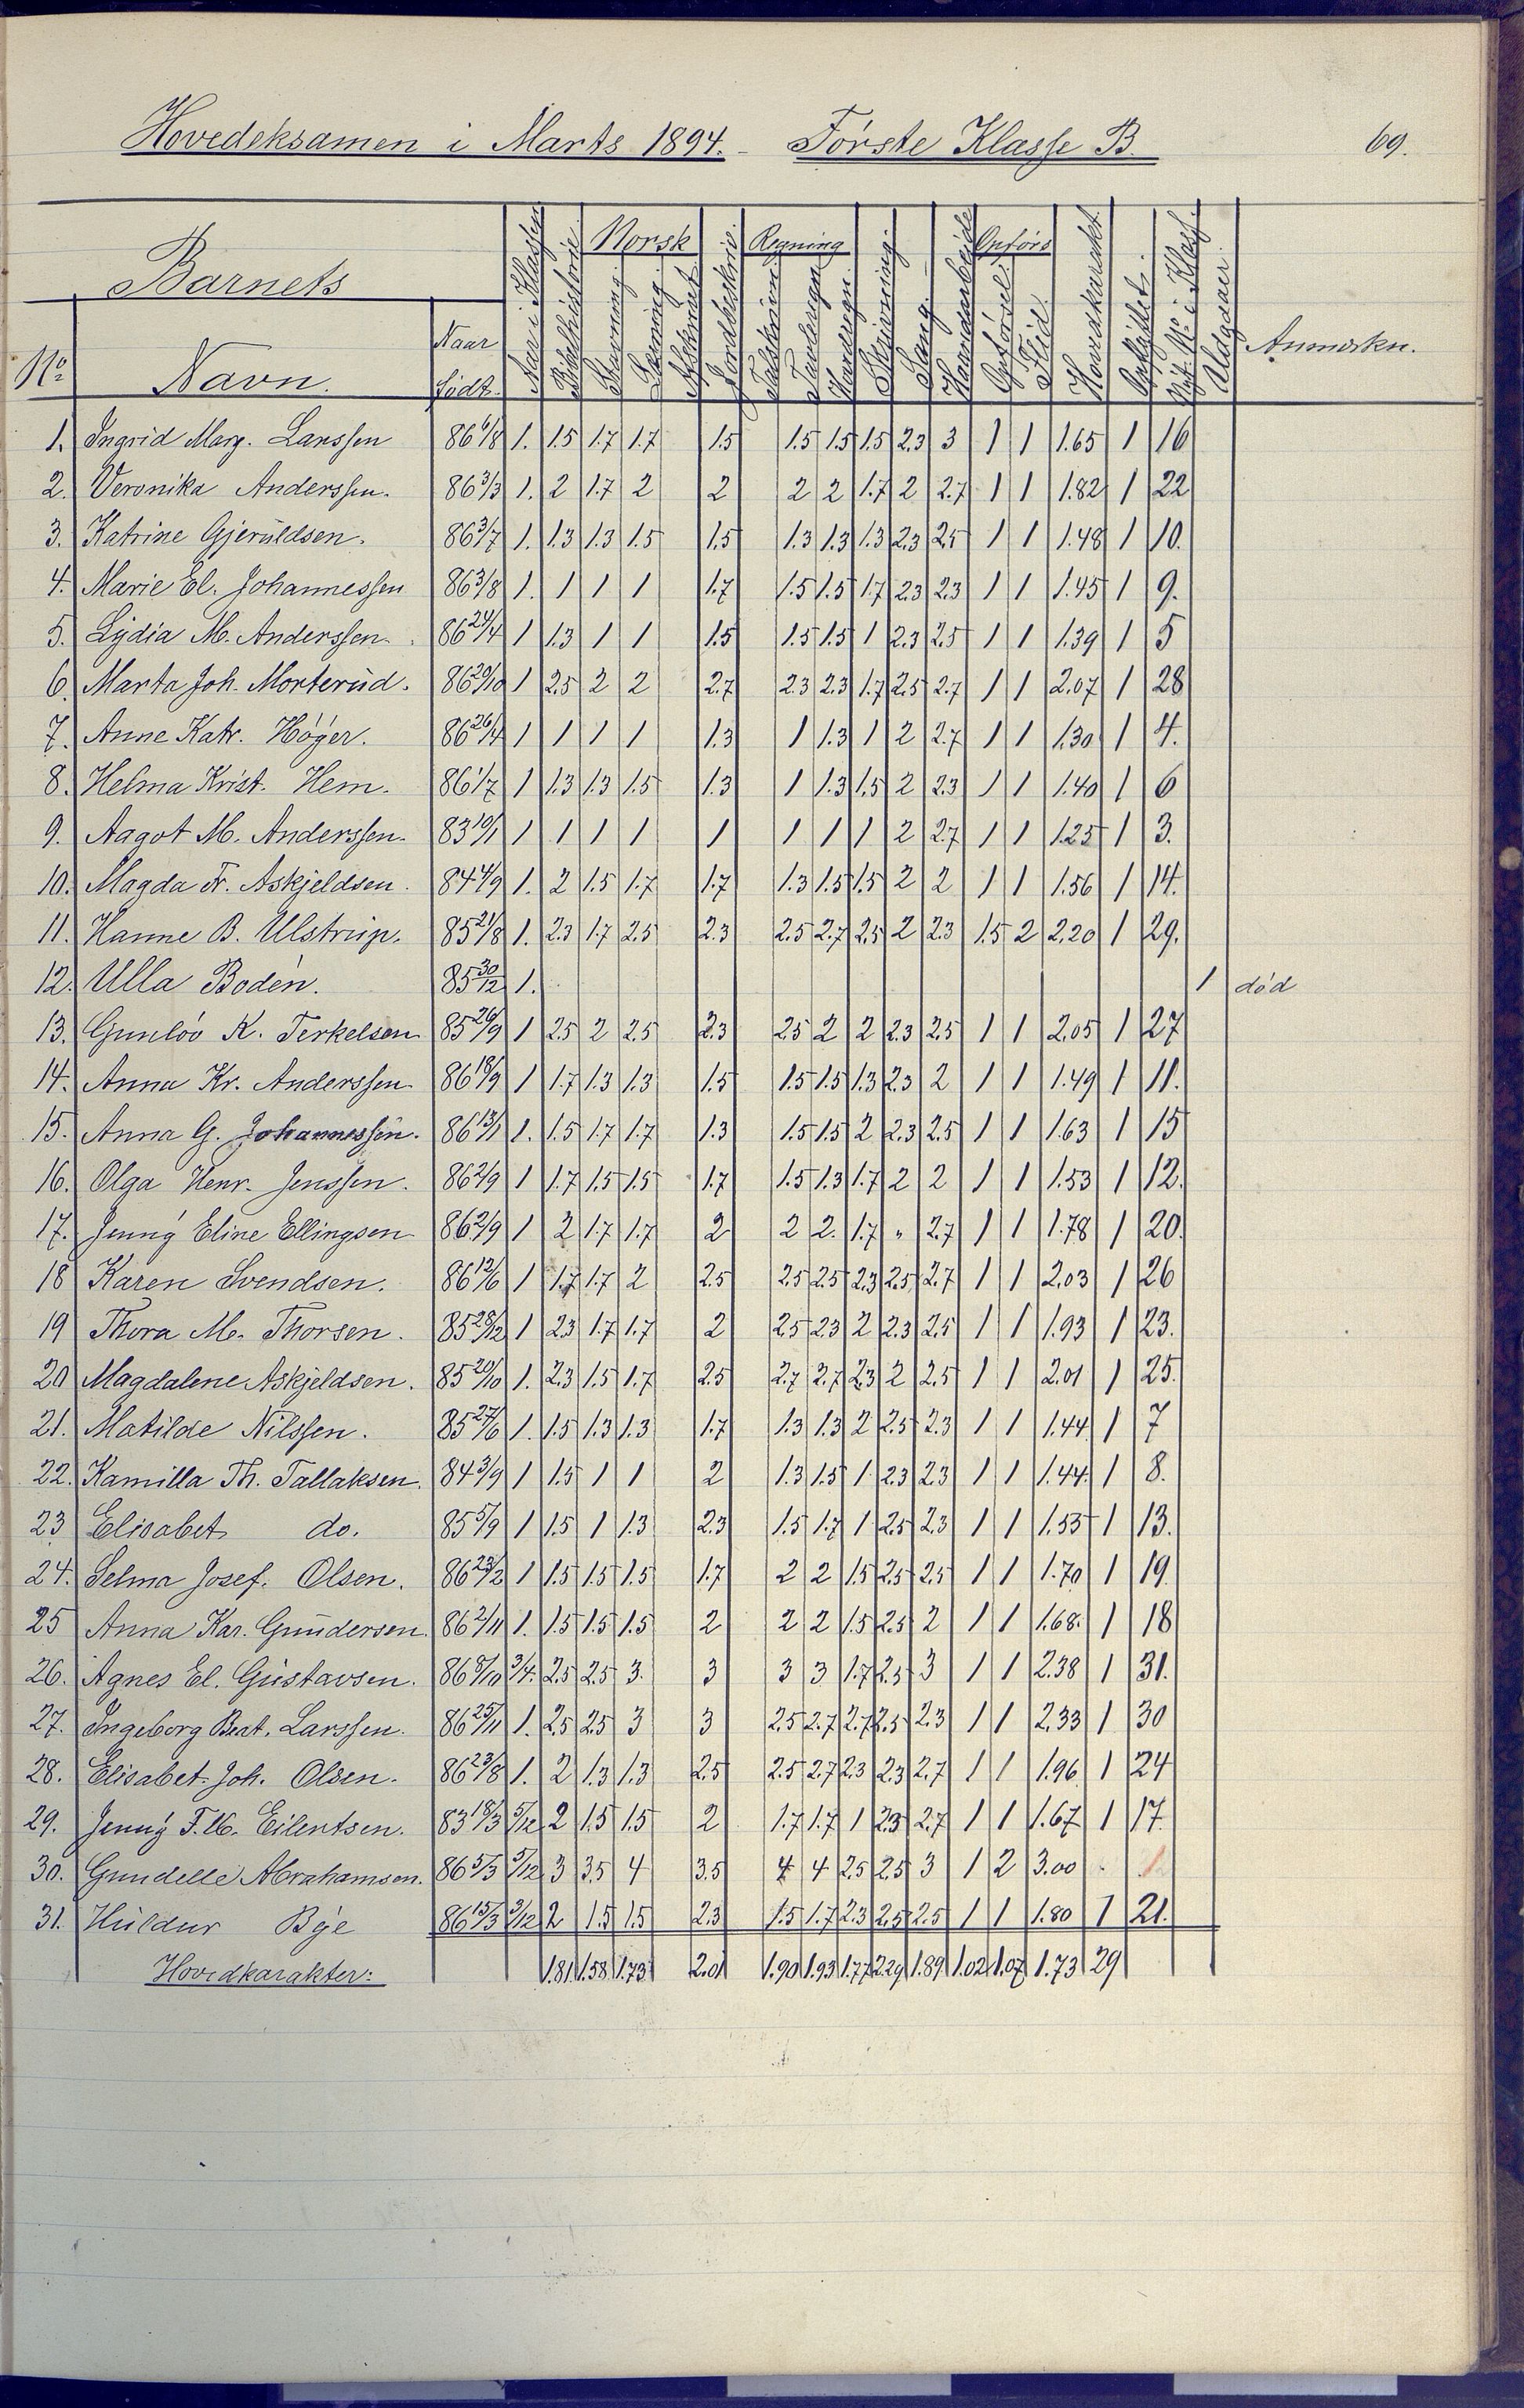 Hovedeksamen i Marts 1894. - Første Klasse B. 69.
Barnets Norsk Regning Opførs
No Navn. Naar født. Aar i Klassen Bibelhistorie Stavning Læsning Afskrivt Jordbeskriv. Talskrivn Tavleregn Hovedregn. Skrivning. Sang. Haandarbejde Opførsel Flid. Hovedkarakt. Opflyttet. Nyt No i Klass. Udgaaer. Anmærkn.
1. Ingrid Marg. Larssen 86 6/8 1. 1.5 1.7 1.7 1.5 1.5 1.5 1.5 2.3 3 1 1 1.65 1 16
2. Veronika Anderssen. 86 3/3 1. 2 1.7 2 2 2 2 1.7 2 2.7 1 1 1.82 1 22
3. Katrine Gjeruldsen. 86 3/7 1. 1.3 1.3 1.5 1.5 1.3 1.3 1.3 2.3 2.5 1 1 1.48 1 10.
4. Marie El. Johannessen 86 3/8 1. 1 1 1 1.7 1.5 1.5 1.7 2.3 2.3 1 1 1.45 1 9.
5. Lydia M. Anderssen. 86 24/4 1 1.3 1 1 1.5 1.5 1.5 1 2.3 2.5 1 1 1.39 1 5
6. Marta Joh. Morterud. 86 20/10 1 2.5 2 2 2.7 2.3 2.3 1.7 2.5 2.7 1 1 2.07 1 28
7. Anne Katr. Höger. 86 26/4 1 1 1 1 1.3 1 1.3 1 2 2.7 1 1 1.30 1 4.
8. Helma Krist. Hem. 86 1/7 1 1.3 1.3 1.5 1.3 1 1.3 1.5 2 2.3 1 1 1.40 1 6
9. Aagot M. Anderssen. 83 10/1 1 1 1 1 1 1 1 1 2 2.7 1 1 1.25 1 3.
10. Magda Fr. Askjeldsen. 84 4/9 1. 2 1.5 1.7 1.7 1.3 1.5 1.5 2 2 1 1 1.56 1 14.
11. Hanne B. Ulstrup. 85 21/8 1. 2.3 1.7 2.5 2.3 2.5 2.7 2.5 2 2.3 1.5 2 2.20 1 29.
12. Ulla Bodén. 85 30/12 1. 1 död
13. Gunlöv K. Terkelsen 85 26/9 1 2.5 2 2.5 2.3 2.5 2 2 2.3 2.5 1 1 2.05 1 27
14. Anna Kr. Anderssen. 86 18/9 1 1.7 1.3 1.3 1.5 1.5 1.5 1.3 2.3 2 1 1 1.49 1 11.
15. Anna G. Johannessen. 86 13/1 1. 1.5 1.7 1.7 1.3 1.5 1.5 2 2.3 2.5 1 1 1.63 1 15
16. Olga Henr. Jenssen. 86 2/9 1 1.7 1.5 1.5 1.7 1.5 1.3 1.7 2 2 1 1 1.53 1 12.
17. Jenny Eline Ellingsen 86 2/9 1 2 1.7 1.7 2 2 2. 1.7 " 2.7 1 1 1.78 1 20.
18 Karen Svendsen. 86 12/6 1 1.7 1.7 2 2.5 2.5 2.5 2.3 2.5 2.7 1 1 2.03 1 26
19 Thora M. Thorsen. 85 28/12 1 2.3 1.7 1.7 2 2.5 2.3 2 2.3 2.5 1 1 1.93 1 23.
20 Magdalene Askjeldsen. 85 20/10 1. 2.3 1.5 1.7 2.5 2.7 2.7 2.3 2 2.5 1 1 2.01 1 25.
21. Matilde Nilssen. 85 27/6 1. 1.5 1.3 1.3 1.7 1.3 1.3 2 2.5 2.3 1 1 1.44 1 7
22. Kamilla Th. Tallaksen. 84 3/9 1 1.5 1 1 2 1.3 1.5 1 2.3 2.3 1 1 1.44. 1 8.
23 Elisabet do. 85 5/9 1 1.5 1 1.3 2.3 1.5 1.7 1 2.5 2.3 1 1 1.53 1 13.
24. Selma Josef. Olsen. 86 23/2 1 1.5 1.5 1.5 1.7 2 2 1.5 2.5 2.5 1 1 1.70 1 19.
25 Anna Kar. Gundersen. 86 2/11 1. 1.5 1.5 1.5 2 2 2 1.5 2.5 2 1 1 1.68. 1 18
26. Agnes El. Gustavsen. 86 8/10 3/4. 2.5 2.5 3. 3 3 3 1.7 2.5 3 1 1 2.38 1 31.
27. Ingeborg Beat. Larssen. 86 25/11 1. 2.5 2.5 3 3 2.5 2.7 2.7 2.5 2.3 1 1 2.33 1 30
28. Elisabet Joh. Olsen. 86 23/8 1. 2 1.3 1.3 2.5 2.5 2.7 2.3 2.3 2.7 1 1 1.96 1 24
29. Jenny F. M. Eilertsen. 83 18/3 5/12 2 1.5 1.5 2 1.7 1.7 1 2.3 2.7 1 1 1.67 1 17.
30. Gundelle Abrahamsen. 86 5/3 5/12 3 3.5 4 3.5 4 4 2.5 2.5 3 1 2 3.00 . 1.
31. Huldur Bye 86 15/3 3/12 2 1.5 1.5 2.3 1.5 1.7 2.3 2.5 2.5 1 1 1.80 1 21.
Hovedkarakter: 1.81 1.58 1.73 2.01 1.90 1.93 1.77 2.29 1.89 1.02 1.07 1.73 29